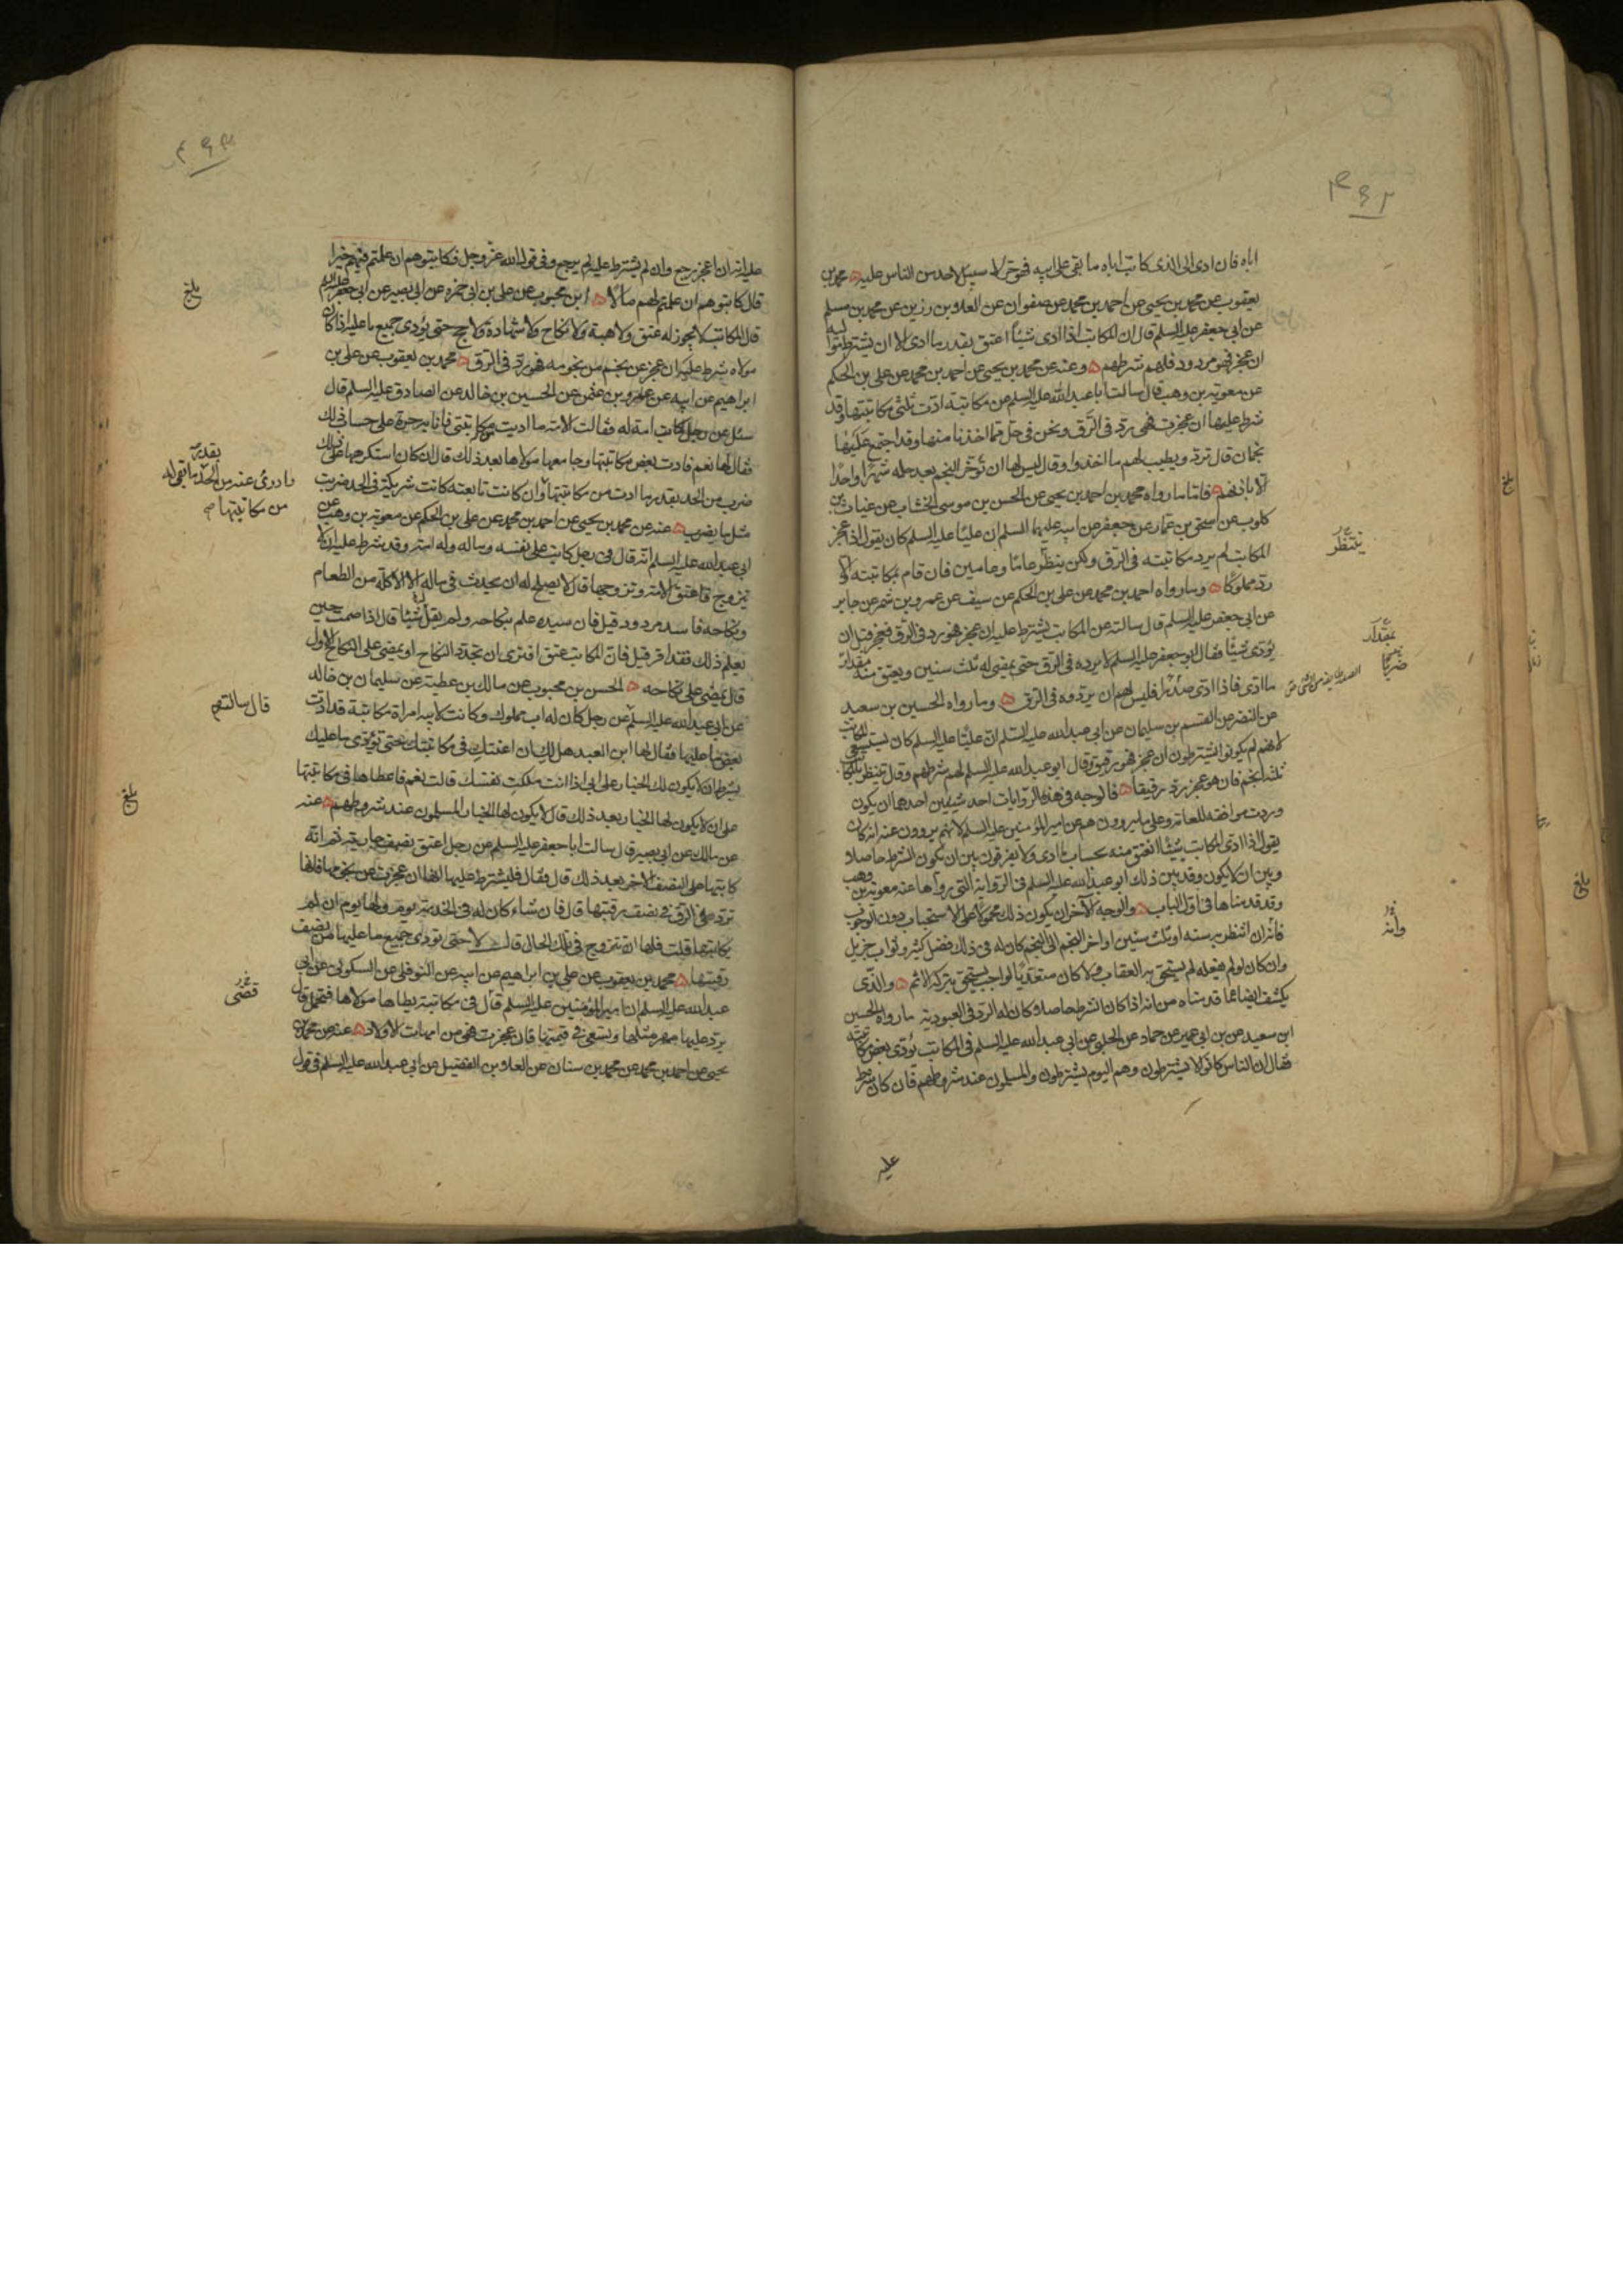 ۴۹۲
اباه فان ادى الى الذى كاتب اباه ما بقى على ابيه فهو حر لا سبيل لاحد من الناس عليه محمد بن
يعقوب عن محمد بن يحيى عن احمد بن محمد عن صفوان عن العلا بن رزين عن محمد بن مسلم
عن ابى جعفر عليه السلم قال ان المكاتب اذا ادى شيئا اعتق بقدر ما ادى الا ان يشترط مواليه
ان عجز فهو مردود فلهم شرطهم وعنه عن محمد بن يحيى عن احمد بن محمد عن على بن الحكم
عن معوية بن وهب قال سالت ابا عبد الله عليه السلم عن مكاتبة ادت ثلثى مكاتبتها وقد
شرط عليها ان عجزت فهى رد فى الرق ونحن فى حل مما اخذنا منها وقد اجتمع عليها
نجمان قال ترد ويطيب لهم ما اخذوا وقال ليس لها ان تؤخر النجم بعد حله شهرا واحدا
الا باذنهم فاما ما رواه محمد بن احمد بن يحيى عن الحسن بن موسى الخشاب عن غياث بن
كلوب عن اسحق بن عمار عن جعفر عن ابيه عليهما السلم ان عليا عليه السلم كان يقول اذا عجز
المكاتب لم يرد مكاتبته فى الرق ولكن ينتظر عاما وعامين فان قام بمكاتبته والا
رد مملوكا وما رواه احمد بن محمد عن على بن الحكم عن سيف عن عمرو بن شمر عن جابر
عن ابى جعفر عليه السلم قال سالته عن المكاتب يشترط عليه ان عجز فهو رد فى الرق فعجز قبل ان
يؤدى شيئا فقال ابو جعفر عليه السلم لا يرده فى الرق حتى يمضى له ثلث سنين ويعتق منه مقدار
ما ادى فاذا ادى صدرا فليس لهم ان يردوه فى الرق وما رواه الحسين بن سعيد
عن النضر عن القسم بن سليمان عن ابى عبد الله عليه السلم ان عليا عليه السلم كان يستسعى المكاتب
لانهم لم يكونوا يشترطون ان عجز فهو رقيق وقال ابو عبد الله عليه السلم لهم شرطهم وقال ينتظر بالمكاتب
ثلثة انجم فان هو عجز رد رقيقا فالوجه فى هذه الروايات احد شيئين احدهما ان يكون
وردت موافقة للعامة وعلى ما يروون هم عن امير المؤمنين عليه السلم لانهم يروون عنه انه كان
يقول اذا ادى المكاتب شيئا انعتق منه بحساب ما ادى ولا يفرقون بين ان يكون الشرط حاصلا
وبين ان لا يكون وقد بين ذلك ابو عبد الله عليه السلم فى الرواية التى رواها عنه معوية بن وهب
وقد قدمناها فى اول الباب والوجه الآخر ان يكون ذلك محمولا على الاستحباب دون الوجوب
فانه ان انتظر به سنة او ثلث سنين او اخر النجم الى النجم كان له فى ذلك فضل كثير وثواب جزيل
وان كان لو لم يفعله لم يستحق به العقاب ولا كان متعديا لواجب يستحق بتركه الاثم والذى
يكشف ايضا عما قدمناه من انه اذا كان الشرط حاصلا كان له الرد فى العبودية ما رواه الحسين
ابن سعيد عن بن ابى عمير عن حماد عن الحلبى عن ابى عبد الله عليه السلم فى المكاتب يؤدى بعض مكاتبته
فقال ان الناس كانوا لا يشترطون وهم اليوم يشترطون والمسلمون عند شروطهم فان كان شرط
عليه
ينتظر
بمقدار
وانه
بلغ
بلغ
۴۹۳
عليه انه ان عجز رجع وان لم يشترط عليه لم يرجع وفى قول الله عز وجل فكاتبوهم ان علمتم فيهم خيرا
قال كاتبوهم ان علمتم لهم مالا ابن محبوب عن على بن ابى حمزه عن ابى بصير عن ابى جعفر عليه السلم
قال المكاتب لا يجوز له عتق ولا هبة ولا نكاح ولا شهادة ولا حج حتى يؤدى جميع ما عليه اذا كان
مولاه شرط عليه ان عجز عن نجم من نجومه فهو رد فى الرق محمد بن يعقوب عن على بن
ابراهيم عن ابيه عن عمرو بن عثمن عن الحسين بن خالد عن الصادق عليه السلم قال
سئل عن رجل كاتب امة له فقالت الامة ما اديت من مكاتبتى فانا به حرة على حساب ذلك
فقال لها نعم فادت بعض مكاتبتها وجامعها مولاها بعد ذلك قال ان كان استكرهها على ذلك
ضرب من الحد بقدر ما ادت من مكاتبتها وان كانت تابعته كانت شريكته فى الحد ضربت
مثل ما يضرب عنه عن محمد بن يحيى عن احمد بن محمد عن على بن الحكم عن معوية بن وهب عن
ابى عبد الله عليه السلم انه قال فى رجل كاتب على نفسه وماله وله امة وقد شرط عليه ان لا
يتزوج فاعتق الامة وتزوجها قال لا يصلح له ان يحدث فى ماله الا الاكلة من الطعام
ونكاحه فاسد مردود قيل فان سيده علم بنكاحه ولم يقل شيئا قال اذا صمت حين
يعلم ذلك فقد اقر قيل فان المكاتب عتق افترى ان يجدد النكاح او يمضى على النكاح الاول
قال يمضى على نكاحه الحسن بن محبوب عن مالك بن عطية عن سليمان بن خالد
عن ابى عبد الله عليه السلم عن رجل كان له اب مملوك وكانت لابيه امراة مكاتبة قد ادت
بعض ما عليها فقال لها ابن العبد هل لك ان اعينك فى مكاتبتك حتى تؤدى ما عليك
بشرط ان لا يكون لك الخيار على ابى اذا انت ملكت نفسك قالت نعم فاعطاها فى مكاتبتها
على ان لا يكون لها الخيار بعد ذلك قال لا يكون لها الخيار المسلمون عند شروطهم عنه
عن مالك عن ابى بصير قال سالت ابا جعفر عليه السلم عن رجل اعتق نصف جاريته ثم انه
كاتبها على النصف الاخر بعد ذلك قال فقال فليشترط عليها انها ان عجزت عن نجومها فانها
ترد فى الرق فى نصف رقبتها قال فان شاء كان له فى الخدمة يوم ولها يوم ان لم
يكاتبها قلت فلها ان تتزوج فى تلك الحال قال لا حتى تؤدى جميع ما عليها من نصف
رقبتها محمد بن يعقوب عن على بن ابراهيم عن ابيه عن النوفلى عن السكونى عن ابى
عبد الله عليه السلم ان امير المؤمنين عليه السلم قال فى مكاتبة يطاها مولاها فتحمل قال
يرد عليها مهر مثلها وتسعى فى قيمتها فان عجزت فهى من امهات الاولاد عنه عن محمد بن
يحيى عن احمد بن محمد عن محمد بن سنان عن العلا بن الفضيل عن ابى عبد الله عليه السلم فى قول
بلغ
بقدر
وادرئ عنه من الحد ما بقى له
من مكاتبتها صح
قال سالته
بلغ
قضى